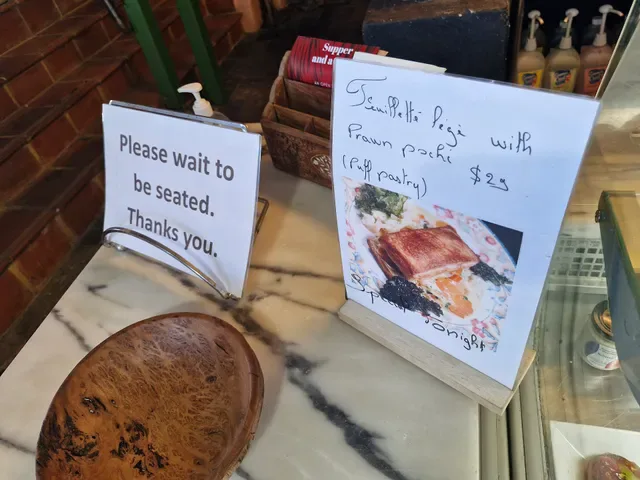 Please wait to
be seated.
Thanks you.
Supper
and a
Feuilleté légé with
Prawn pochi $29
(Puff pastry)
Special tonight